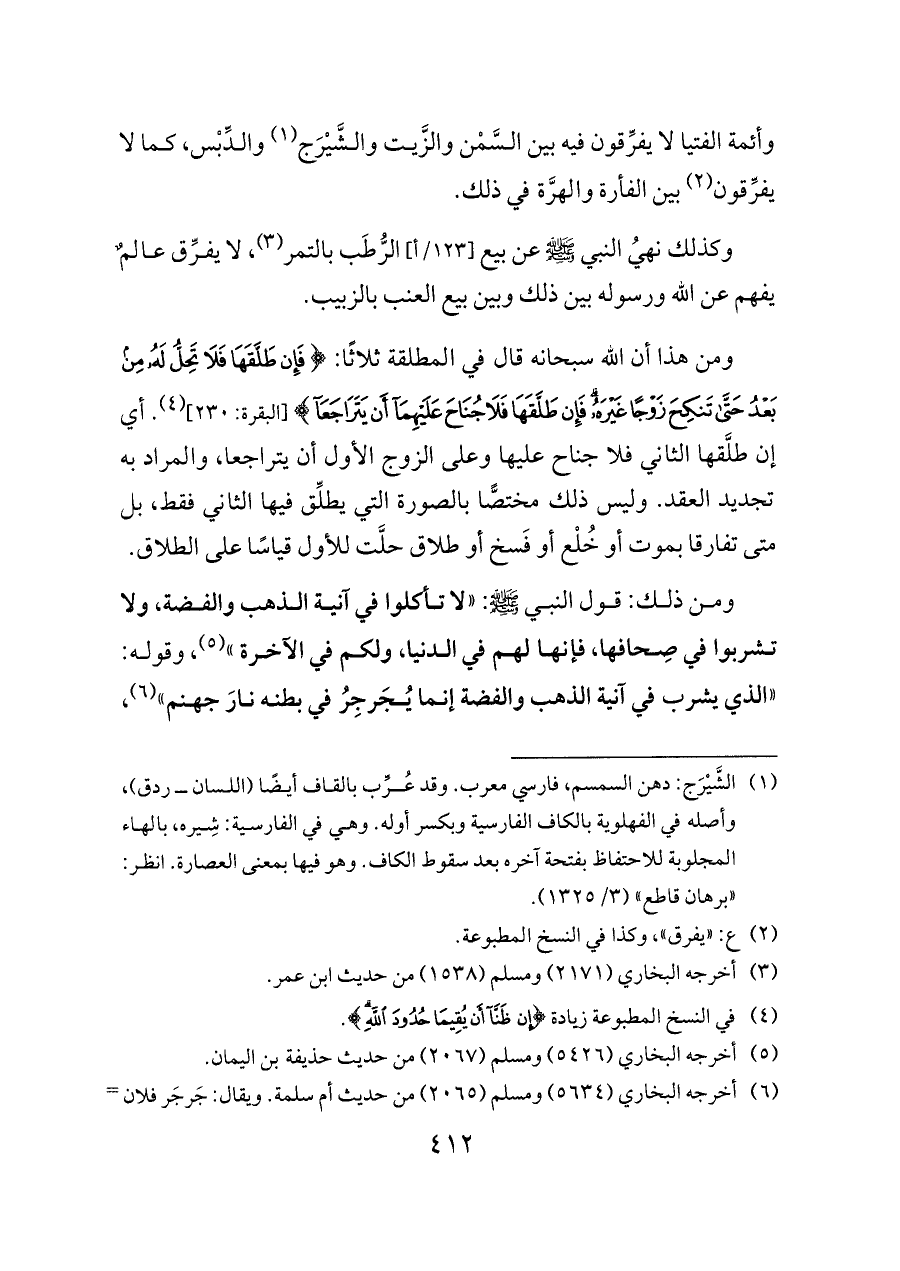 وأئمة الفتيا لا يفرِّقون فيه بين السَّمْن والزَّيت والشَّيْرَج(١) والدِّبْس، كما لا
يفرِّقون(٢) بين الفأرة والهرَّة في ذلك.
وكذلك نهيُ النبي ﷺ عن بيع [١٢٣/أ] الرُّطَب بالتمر(٣)، لا يفرِّق عالمٌ
يفهم عن الله ورسوله بين ذلك وبين بيع العنب بالزبيب.
ومن هذا أن الله سبحانه قال في المطلقة ثلاثًا: ﴿فَإِن طَلَّقَهَا فَلَا تَحِلُّ لَهُۥ مِنۢ
بَعْدُ حَتَّىٰ تَنكِحَ زَوْجًا غَيْرَهُۥۗ فَإِن طَلَّقَهَا فَلَا جُنَاحَ عَلَيْهِمَآ أَن يَتَرَاجَعَآ﴾ [البقرة: ٢٣٠](٤). أي
إن طلَّقها الثاني فلا جناح عليها وعلى الزوج الأول أن يتراجعا، والمراد به
تجديد العقد. وليس ذلك مختصًّا بالصورة التي يطلِّق فيها الثاني فقط، بل
متى تفارقا بموت أو خُلْع أو فَسخ أو طلاق حلَّت للأول قياسًا على الطلاق.
ومن ذلك: قول النبي ﷺ: «لا تأكلوا في آنية الذهب والفضة، ولا
تشربوا في صِحافها، فإنها لهم في الدنيا، ولكم في الآخرة»(٥)، وقوله:
«الذي يشرب في آنية الذهب والفضة إنما يُجَرجِرُ في بطنه نارَ جهنم»(٦)،
(١) الشَّيْرَج: دهن السمسم، فارسي معرب. وقد عُرِّب بالقاف أيضًا (اللسان ـ ردق)،
وأصله في الفهلوية بالكاف الفارسية وبكسر أوله. وهي في الفارسية: شِيره، بالهاء
المجلوبة للاحتفاظ بفتحة آخره بعد سقوط الكاف. وهو فيها بمعنى العصارة. انظر:
«برهان قاطع» (٣/ ١٣٢٥).
(٢) ع: «يفرق»، وكذا في النسخ المطبوعة.
(٣) أخرجه البخاري (٢١٧١) ومسلم (١٥٣٨) من حديث ابن عمر.
(٤) في النسخ المطبوعة زيادة ﴿إِن ظَنَّآ أَن يُقِيمَا حُدُودَ ٱللَّهِۗ﴾.
(٥) أخرجه البخاري (٥٤٢٦) ومسلم (٢٠٦٧) من حديث حذيفة بن اليمان.
(٦) أخرجه البخاري (٥٦٣٤) ومسلم (٢٠٦٥) من حديث أم سلمة. ويقال: جَرجَر فلان =
٤١٢